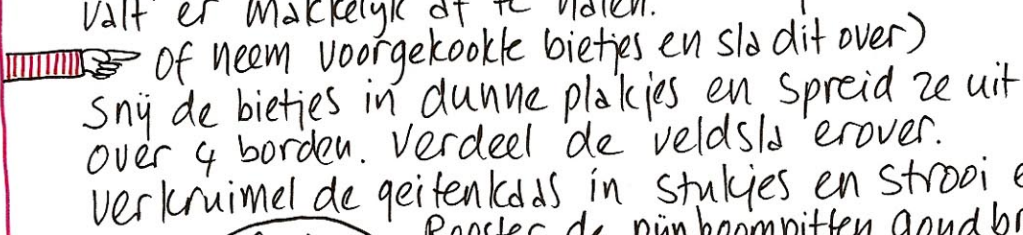 valt er makkelyk af te halen.
of neem voorgekookte bietjes en sla dit over)
Snij de bietjes in dunne plakjes en spreid ze uit
over 4 borden. Verdeel de veldsla erover.
Verkruimel de geitenkaas in stukjes en strooi
Rooster de pijnboompitten goudbr